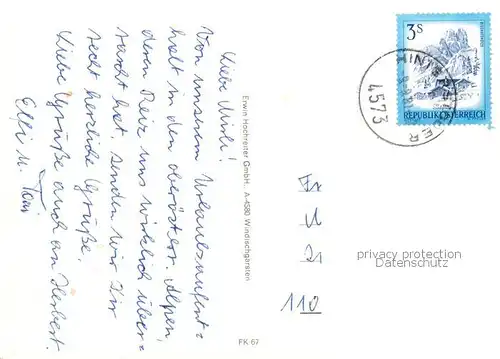 Liebe Mirli!
Von unserem Urlaubsaufent=
halt in den oberösterr. Alpen,
deren Reiz uns wirklich über=
rascht hat, senden wir Dir
recht herzliche Grüße.
Liebe Grüße auch an Herbert.
Elli u. Toni
Erwin Hochreiter GmbH., A-4580 Windischgarsten
FK 67
3S
REPUBLIK ÖSTERREICH
HINTERSTODER
4573
110
privacy protection
Datenschutz